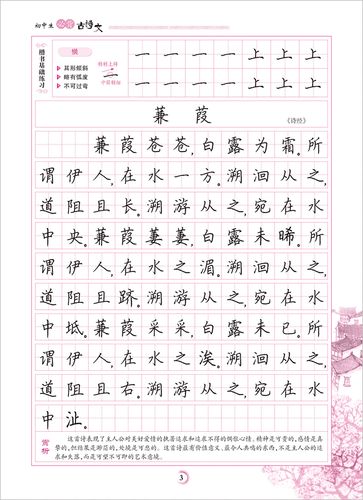 初中生必背古诗文
楷书基础练习
横
其形倾斜
略有弧度
不可过弯
一 一 一 一 上 上 上
一 一 一 一 上 上 上
蒹葭
《诗经》
蒹葭苍苍,白露为霜。所
谓伊人,在水一方。溯洄从之,
道阻且长。溯游从之,宛在水
中央。蒹葭萋萋,白露未晞。所
谓伊人,在水之湄。溯洄从之,
道阻且跻。溯游从之,宛在水
中坻。蒹葭采采,白露未已。所
谓伊人,在水之涘。溯洄从之,
道阻且右。溯游从之,宛在水
中沚。
赏析
这首诗表现了主人公对美好爱情的执著追求和追求不得的惆怅心情。精神是可贵的,感情是真
挚的,但结果是渺茫的,处境是可悲的。这首诗最有价值意义、最令人共鸣的东西,不是主人公的追
求和失落,而是可望不可即的艺术意境。
3